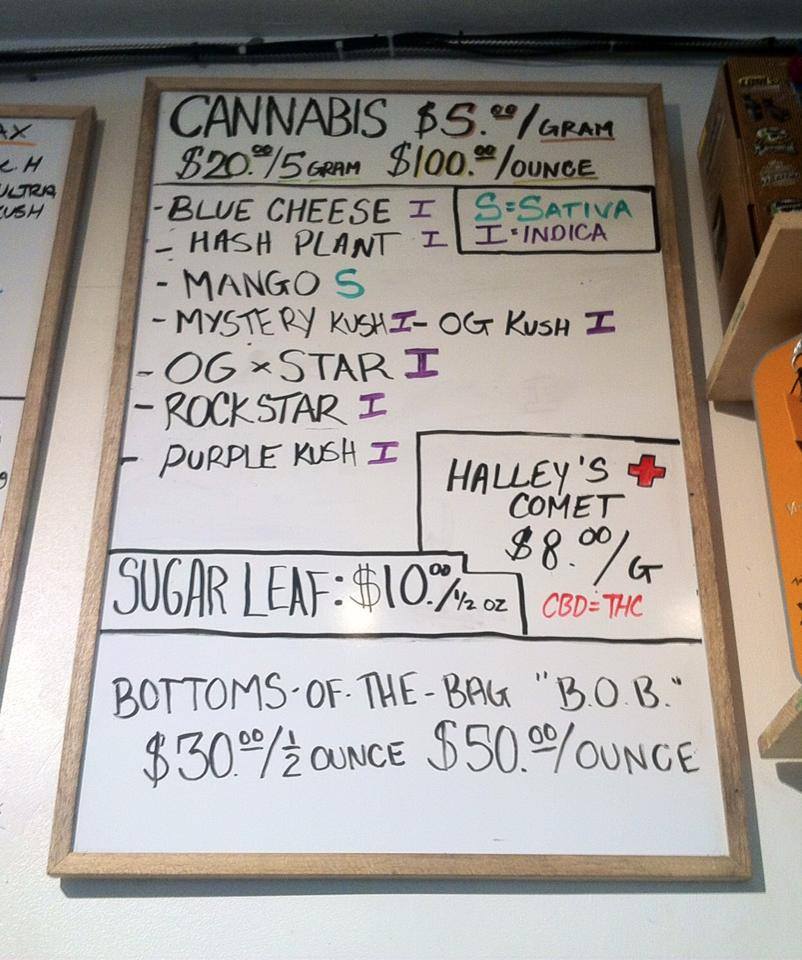 CANNABIS $5.00/GRAM
$20.00/5 GRAM $100.00/OUNCE
- BLUE CHEESE I
- HASH PLANT I
S=SATIVA
I=INDICA
- MANGO S
- MYSTERY KUSH I - OG KUSH I
- OG x STAR I
- ROCKSTAR I
- PURPLE KUSH I
HALLEY'S
COMET
$8.00/G
CBD=THC
SUGAR LEAF: $10.00/1/2 OZ
BOTTOMS-OF-THE-BAG "B.O.B."
$30.00/1/2 OUNCE $50.00/OUNCE
AX
H
ULTRA
KUSH